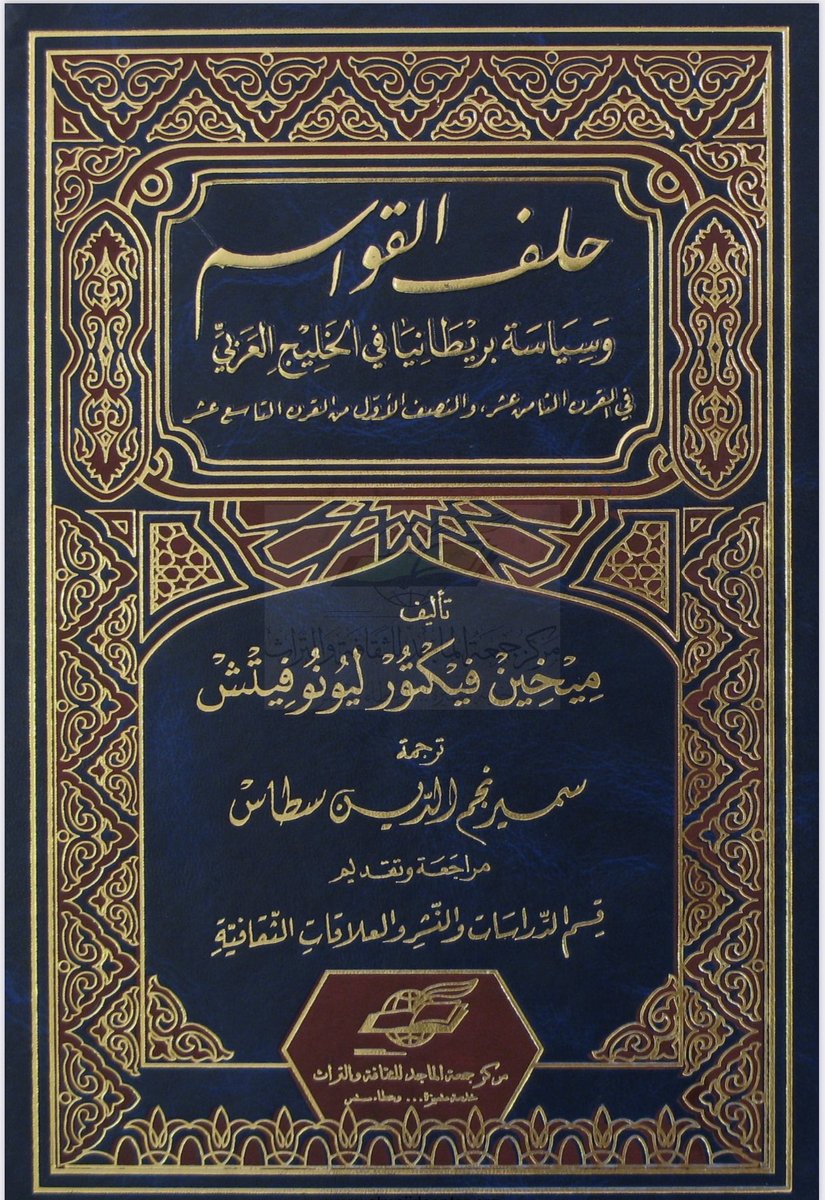 حلف القواسم
وَسِيَاسَة بريْطَانِيَا في الخَلِيْجِ العَرَبيِّ
في القرن الثامن عشر، والنصف الأوّل من القرن التاسع عشر
تأليف
مركز جمعة الماجد للثقافة والتراث
مِيْخِيْنْ فِيْكْتُوْرْ لِيُونُوفِيْتْشْ
ترجمة
سمير نجم الدّين سطاس
مراجَعَة وتقديم
قِسم الدِّراسَات والنَّشْرِ والعلاقاتِ الثَّقافيَّةِ
مركز جمعة الماجد للثقافة والتراث